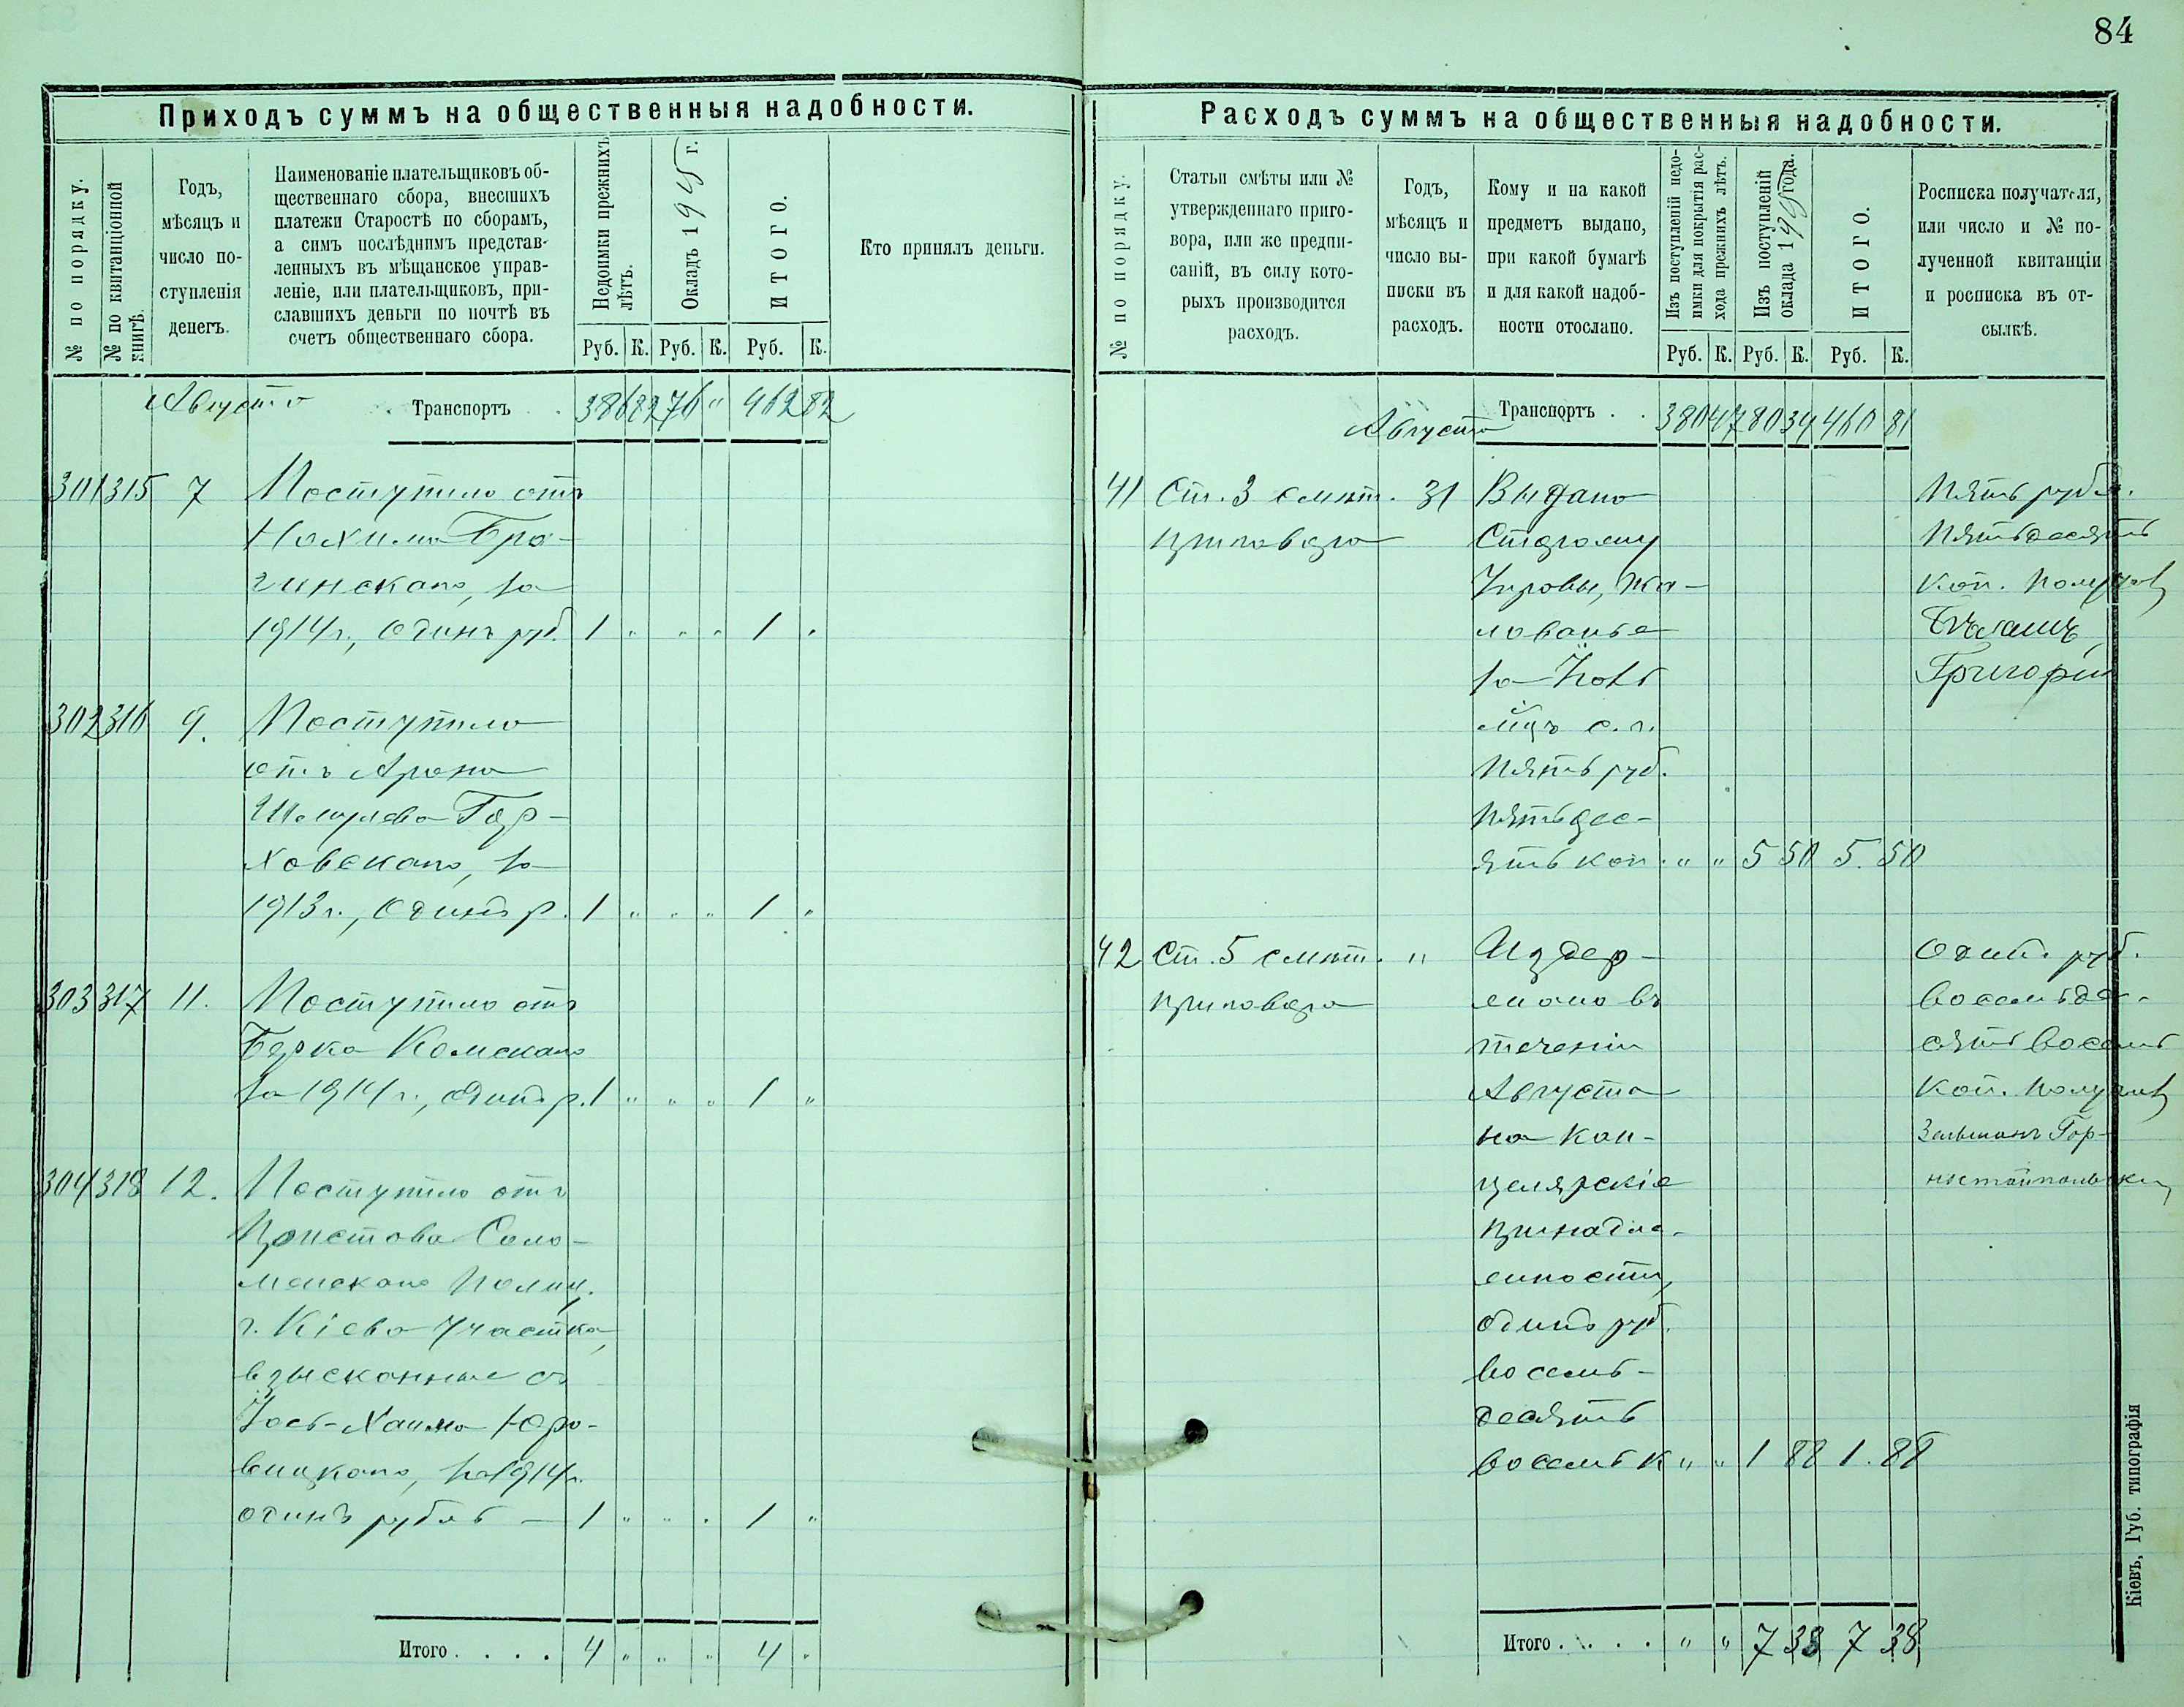 84
Приходъ суммъ на общественныя надобности.
№ по порядку.
№ по квитанціонной
книгѣ.
Годъ,
мѣсяцъ и
число по-
ступленія
денегъ.
Наименованіе плательщиковъ об-
щественнаго сбора, внесшихъ
платежи Старостѣ по сборамъ,
а симъ послѣднимъ представ-
ленныхъ въ мѣщанское управ-
леніе, или плательщиковъ, при-
славшихъ деньги по почтѣ въ
счетъ общественнаго сбора.
Недоимки прежнихъ
лѣтъ.
Окладъ 1915 г.
ИТОГО.
Кто принялъ деньги.
Руб. К. Руб. К. Руб. К.
Августъ Транспортъ 386 82 76 " 462 82
301 315 7 Поступило отъ
Нохима Бра-
гинскаго, за
1914 г., Одинъ руб. 1 " " " 1 "
302 316 9. Поступило
отъ Арона
Шмулева Гор-
ховскаго, за
1913 г., Одинъ р. 1 " " " 1 "
303 317 11. Поступило отъ
Берка Комскаго
за 1914 г., Одинъ р. 1 " " " 1 "
304 318 12. Поступило отъ
Пристава Соло-
менскаго Полиц.
г. Кіева Участка,
взысканные съ
Іось-Хаима Юро-
вицкаго, за 1914 г.
одинъ рубль — 1 " " " 1 "
Итого . . . . 4 " " " 4 "
Расходъ суммъ на общественныя надобности.
№ по порядку.
Статьи смѣты или №
утвержденнаго приго-
вора, или же предпи-
саній, въ силу кото-
рыхъ производится
расходъ.
Годъ,
мѣсяцъ и
число вы-
писки въ
расходъ.
Кому и на какой
предметъ выдано,
при какой бумагѣ
и для какой надоб-
ности отослано.
Изъ поступленій недо-
имки для покрытія рас-
хода прежнихъ лѣтъ.
Изъ поступленій
оклада 1915 года.
ИТОГО.
Росписка получателя,
или число и № по-
лученной квитанціи
и росписка въ от-
сылкѣ.
Руб. К. Руб. К. Руб. К.
Августъ Транспортъ . . 380 47 80 34 460 81
41 Ст. 3 смѣт. 31 Выдано Пять рубл.
приговора Старому Пятьдесятъ
Управы, жа- коп. Получ.
лованье
за Іюль Григорій
м-цъ с. г.
Пять руб.
пятьдес-
ятъ коп. " " 5 50 5. 50
42 Ст. 5 смѣт. " Издер- Одинъ руб.
приговора жано въ восемьде-
теченіи сятъ восемь
Августа коп. Получ.
на кан- Зельманъ Гор-
целярскіе ностайпольскій
принадле-
жности,
одинъ руб.
восемь-
десятъ
восемь к " " 1 88 1. 88
Итого . . . . " " 7 38 7 38
Кіевъ, Губ. типографія